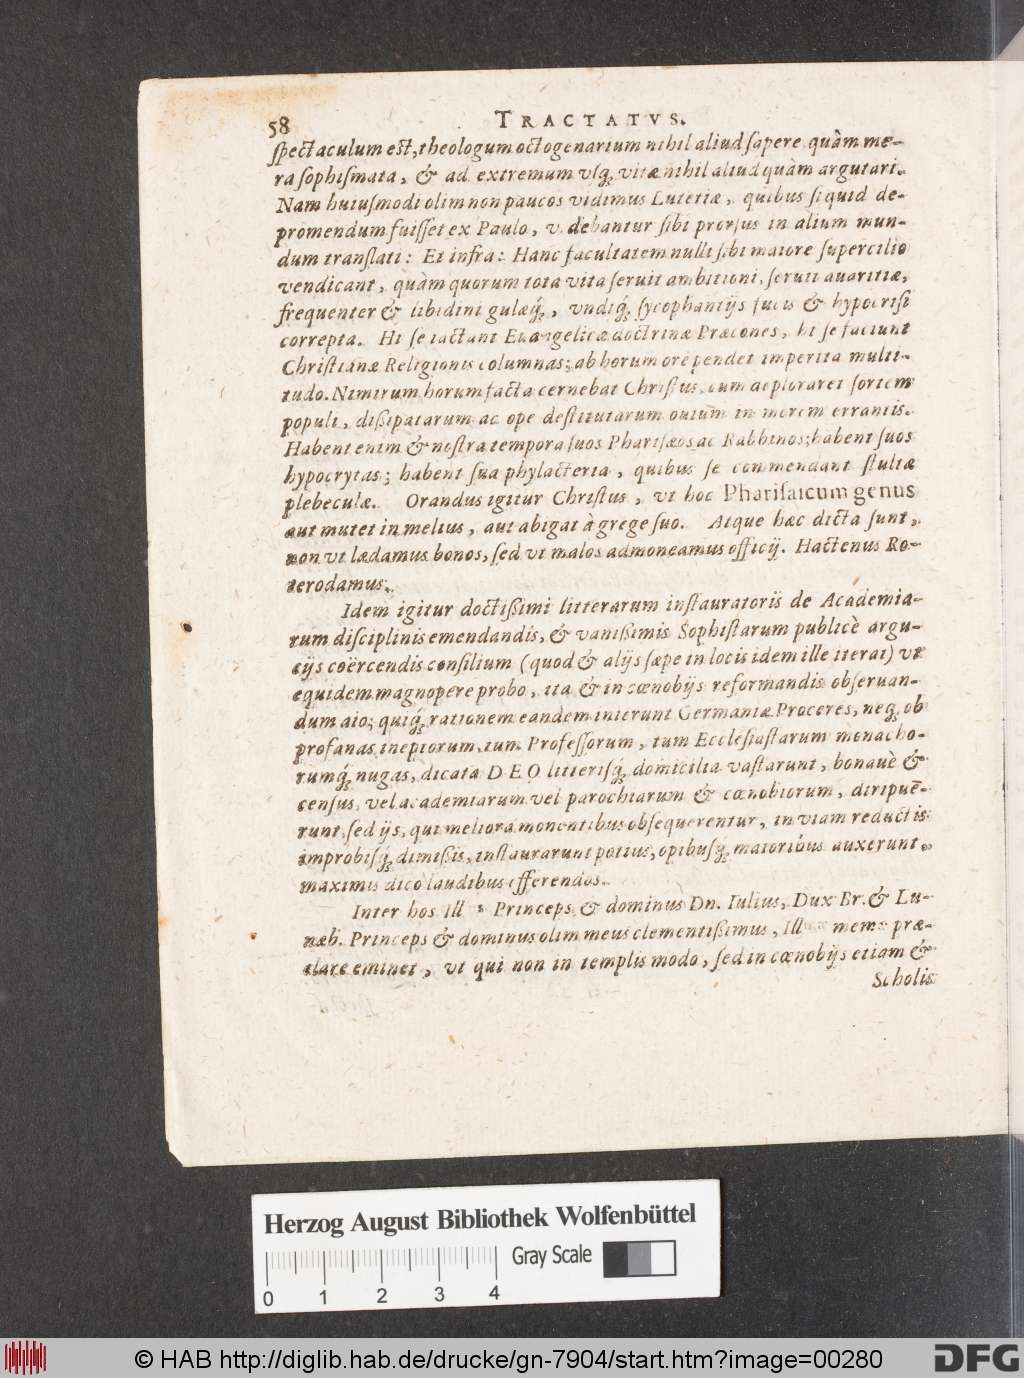 58 TRACTATVS.
ſpectaculum eſt, theologum octogenarium nihil aliud ſapere quàm me-
ra ſophiſmata, & ad extremum vſq; vitæ nihil aliud quàm argutari.
Nam huiuſmodi olim non paucos vidimus Lutetiæ, quibus ſi quid de-
promendum fuiſſet ex Paulo, v. debantur ſibi prorſus in alium mun-
dum tranſlati: Et infra: Hanc facultatem nulli ſibi maiore ſupercilio
vendicant, quàm quorum tota vita ſeruit ambitioni, ſeruit auaritiæ,
frequenter & libidini gulæq́;, vndiq́; ſycophantijs fucis & hypocriſi
correpta. Hi ſe iactant Euangelicæ doctrinæ Præcones, hi ſe faciunt
Chriſtianæ Religionis columnas; ab horum ore pendet imperita multi-
tudo. Nimirum horum facta cernebat Chriſtus, cum deploraret ſortem
populi, dißipatarum ac ope deſtitutarum ouium in morem errantis.
Habent enim & noſtra tempora ſuos Phariſæos ac Rabbinos; habent ſuos
hypocrytas; habent ſua phylacteria, quibus ſe commendant ſtultæ
plebeculæ. Orandus igitur Chriſtus, vt hoc Phariſaicum genus
aut mutet in melius, aut abigat à grege ſuo. Atque hæc dicta ſunt,
non vt lædamus bonos, ſed vt malos admoneamus officij. Hactenus Ro-
terodamus.
Idem igitur doctißimi litterarum inſtauratoris de Academia-
rum diſciplinis emendandis, & vanißimis Sophiſtarum publicè argu-
cijs coërcendis conſilium (quod & alijs ſæpe in locis idem ille iterat) vt
equidem magnopere probo, ita & in cœnobijs reformandis obſeruan-
dum aio; quiq́; rationem eandem inierunt Germaniæ Proceres, neq; ob
profanas ineptorum, tum Profeſſorum, tum Eccleſiaſtarum monacho-
rumq́; nugas, dicata DEO litteriſq́; domicilia vaſtarunt, bonauè &
cenſus, vel academiarum vel parochiarum & cœnobiorum, diripuē-
runt, ſed ijs, qui meliora monentibus obſequerentur, in viam reductis
improbiſq́; dimißis, inſtaurarunt potius, opibuſq́; maioribus auxerunt,
maximis dico laudibus efferendos.
Inter hos Ill Princeps & dominus Dn. Iulius, Dux Br. & Lu-
næb. Princeps & dominus olim meus clementißimus, Ill mem præ-
clarè eminet, vt qui non in templis modo, ſed in cœnobijs etiam &
Scholis
Herzog August Bibliothek Wolfenbüttel
Gray Scale
0 1 2 3 4
© HAB http://diglib.hab.de/drucke/gn-7904/start.htm?image=00280
DFG